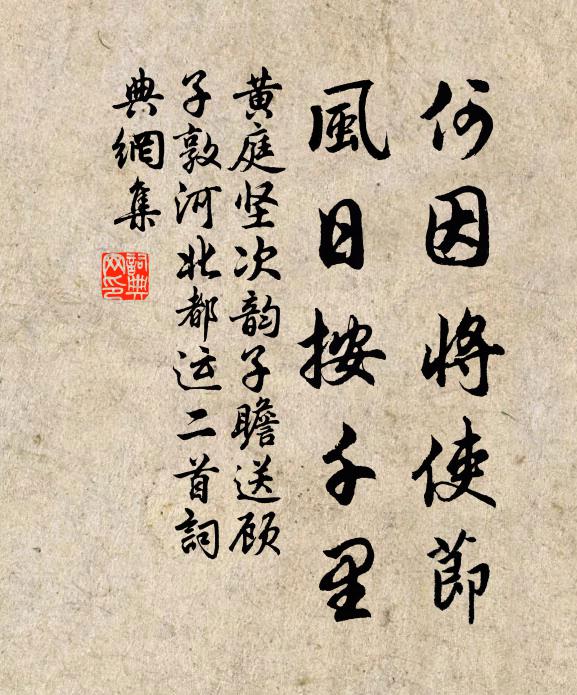 何因將使節
風日按千里
黄庭坚次韵子瞻送顾
子敦河北都运二首詞
典網集
詞典網印